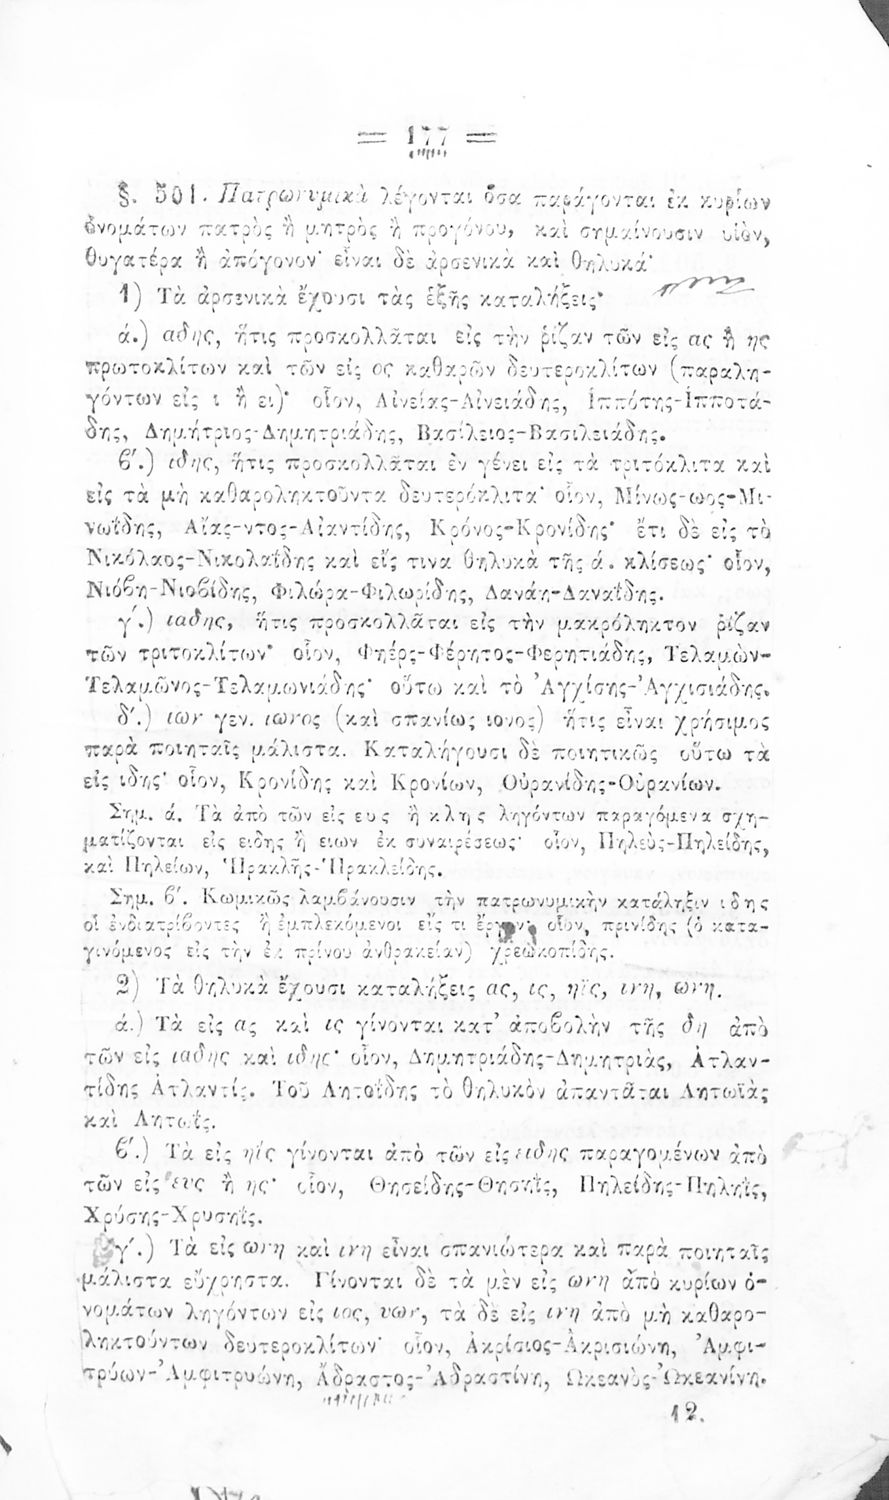 = 177 =
§. 501. Πατρωνυμικὰ λέγονται ὅσα παράγονται ἐκ κυρίων
ὀνομάτων πατρὸς ἢ μητρὸς ἢ προγόνου, καὶ σημαίνουσιν υἱὸν,
θυγατέρα ἢ ἀπόγονον· εἶναι δὲ ἀρσενικὰ καὶ θηλυκά·
1) Τὰ ἀρσενικὰ ἔχουσι τὰς ἑξῆς καταλήξεις·
ά.) αδης, ἥτις προσκολλᾶται εἰς τὴν ῥίζαν τῶν εἰς ας ἢ ης
πρωτοκλίτων καὶ τῶν εἰς ος καθαρῶν δευτεροκλίτων (παραλη-
γόντων εἰς ι ἢ ει)· οἷον, Αἰνείας-Αἰνειάδης, Ἱππότης-Ἱπποτά-
δης, Δημήτριος-Δημητριάδης, Βασίλειος-Βασιλειάδης.
ϐ′.) ιδης, ἥτις προσκολλᾶται ἐν γένει εἰς τὰ τριτόκλιτα καὶ
εἰς τὰ μὴ καθαροληκτοῦντα δευτερόκλιτα· οἷον, Μίνως-ωος-Μι-
νωΐδης, Αἴας-ντος-Αἰαντίδης, Κρόνος-Κρονίδης· ἔτι δὲ εἰς τὸ
Νικόλαος-Νικολαΐδης καὶ εἴς τινα θηλυκὰ τῆς ά. κλίσεως· οἷον,
Νιόϐη-Νιοϐίδης, Φιλώρα-Φιλωρίδης, Δανάη-Δαναΐδης.
γ′.) ιαδης, ἥτις προσκολλᾶται εἰς τὴν μακρόληκτον ῥίζαν
τῶν τριτοκλίτων· οἷον, Φηέρς-Φέρητος-Φερητιάδης, Τελαμὼν-
Τελαμῶνος-Τελαμωνιάδης· οὕτω καὶ τὸ Ἀγχίσης-Ἀγχισιάδης.
δ′.) ιων γεν. ιωνος (καὶ σπανίως ιονος) ἥτις εἶναι χρήσιμος
παρὰ ποιηταῖς μάλιστα. Καταλήγουσι δὲ ποιητικῶς οὕτω τὰ
εἰς ιδης· οἷον, Κρονίδης καὶ Κρονίων, Οὐρανίδης-Οὐρανίων.
Σημ. ά. Τὰ ἀπὸ τῶν εἰς ευς ἢ κλης ληγόντων παραγόμενα σχη-
ματίζονται εἰς ειδης ἢ ειων ἐκ συναιρέσεως· οἷον, Πηλεὺς-Πηλείδης,
καὶ Πηλείων, Ἡρακλῆς-Ἡρακλείδης.
Σημ. ϐ′. Κωμικῶς λαμϐάνουσιν τὴν πατρωνυμικὴν κατάληξιν ιδης
οἱ ἐνδιατρίϐοντες ἢ ἐμπλεκόμενοι εἴς τι ἔργον· οἷον, πρινίδης (ὁ κατα-
γινόμενος εἰς τὴν ἐκ πρίνου ἀνθρακείαν) χρεωκοπίδης.
2) Τὰ θηλυκὰ ἔχουσι καταλήξεις ας, ις, ηῒς, ινη, ωνη.
ά.) Τὰ εἰς ας καὶ ις γίνονται κατ' ἀποϐολὴν τῆς δη ἀπὸ
τῶν εἰς ιαδης καὶ ιδης· οἷον, Δημητριάδης-Δημητριὰς, Ἀτλαν-
τίδης Ἀτλαντίς. Τοῦ Λητοΐδης τὸ θηλυκὸν ἀπαντᾶται Λητωϊὰς
καὶ Λητωΐς.
ϐ′.) Τὰ εἰς ηῒς γίνονται ἀπὸ τῶν εἰς ειδης παραγομένων ἀπὸ
τῶν εἰς ευς ἢ ης· οἷον, Θησείδης-Θησηῒς, Πηλείδης-Πηληῒς,
Χρύσης-Χρυσηΐς.
γ′.) Τὰ εἰς ωνη καὶ ινη εἶναι σπανιώτερα καὶ παρὰ ποιηταῖς
μάλιστα εὔχρηστα. Γίνονται δὲ τὰ μὲν εἰς ωνη ἀπὸ κυρίων ὀ-
νομάτων ληγόντων εἰς ιος, υων, τὰ δὲ εἰς ινη ἀπὸ μὴ καθαρο-
ληκτούντων δευτεροκλίτων· οἷον, Ἀκρίσιος-Ἀκρισιώνη, Ἀμφι-
τρύων-Ἀμφιτρυώνη, Ἄδραστος-Ἀδραστίνη, Ὠκεανὸς-Ὠκεανίνη.
12.